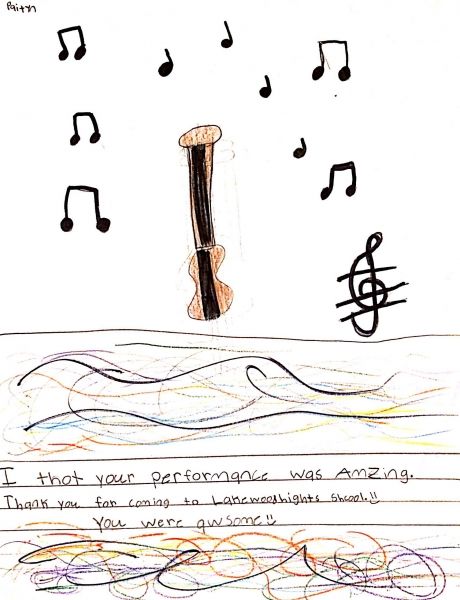 Paityn
I thot your performance was Amzing.
Thank you for coming to Lakewoodhights Shcool.!!
You were awsome!!